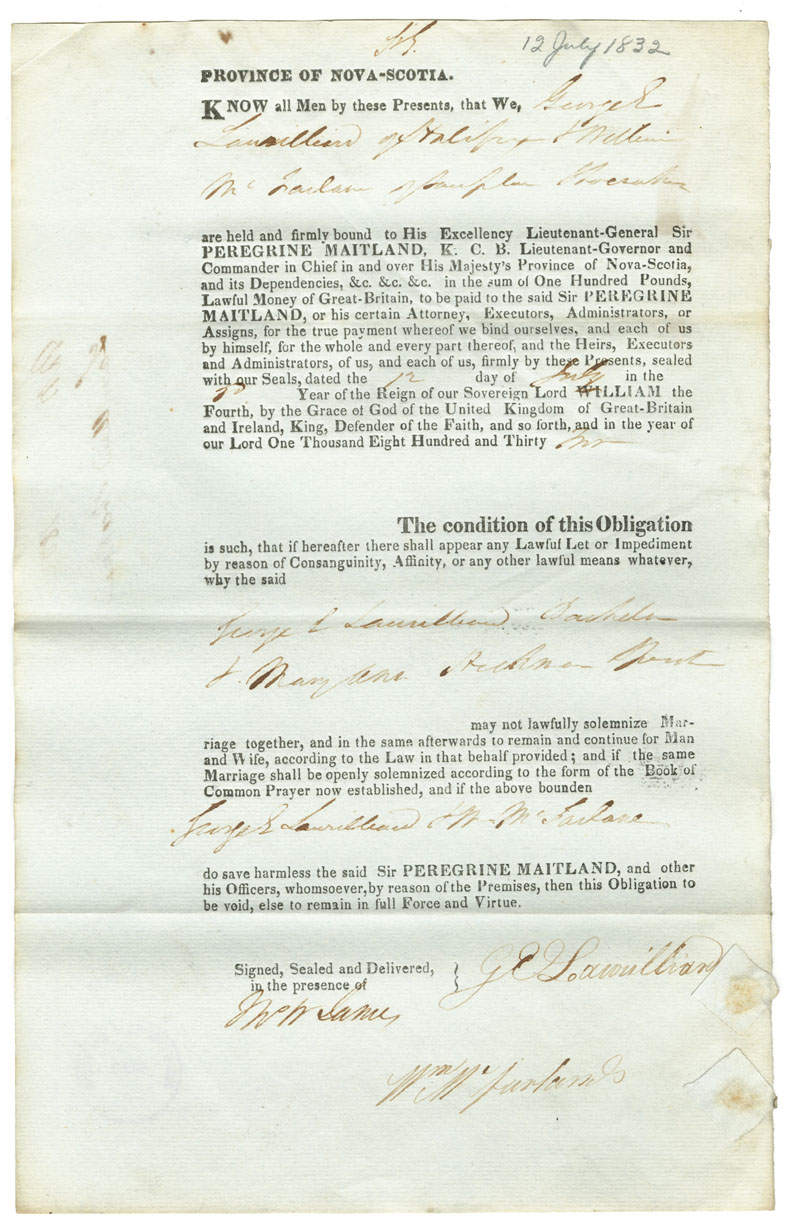 12 July 1832
PROVINCE OF NOVA-SCOTIA.
KNOW all Men by these Presents, that We, George E
Laurilliard of Halifax & William
Mc Farlane of
are held and firmly bound to His Excellency Lieutenant-General Sir
PEREGRINE MAITLAND, K. C. B. Lieutenant-Governor and
Commander in Chief in and over His Majesty's Province of Nova-Scotia,
and its Dependencies, &c. &c. &c. in the sum of One Hundred Pounds,
Lawful Money of Great-Britain, to be paid to the said Sir PEREGRINE
MAITLAND, or his certain Attorney, Executors, Administrators, or
Assigns, for the true payment whereof we bind ourselves, and each of us
by himself, for the whole and every part thereof, and the Heirs, Executors
and Administrators, of us, and each of us, firmly by these Presents, sealed
with our Seals, dated the 12 day of July in the
Year of the Reign of our Sovereign Lord WILLIAM the
Fourth, by the Grace of God of the United Kingdom of Great-Britain
and Ireland, King, Defender of the Faith, and so forth, and in the year of
our Lord One Thousand Eight Hundred and Thirty Two
The condition of this Obligation
is such, that if hereafter there shall appear any Lawful Let or Impediment
by reason of Consanguinity, Affinity, or any other lawful means whatever,
why the said
George E Laurilliard Bachelor
& Mary Ann Hickman Spinst
may not lawfully solemnize Mar-
riage together, and in the same afterwards to remain and continue for Man
and Wife, according to the Law in that behalf provided; and if the same
Marriage shall be openly solemnized according to the form of the Book of
Common Prayer now established, and if the above bounden
George E Laurilliard & Wm Mc Farlane
do save harmless the said Sir PEREGRINE MAITLAND, and other
his Officers, whomsoever, by reason of the Premises, then this Obligation to
be void, else to remain in full Force and Virtue.
Signed, Sealed and Delivered, } G E Laurilliard
in the presence of
Thos W James
Wm Mcfarland